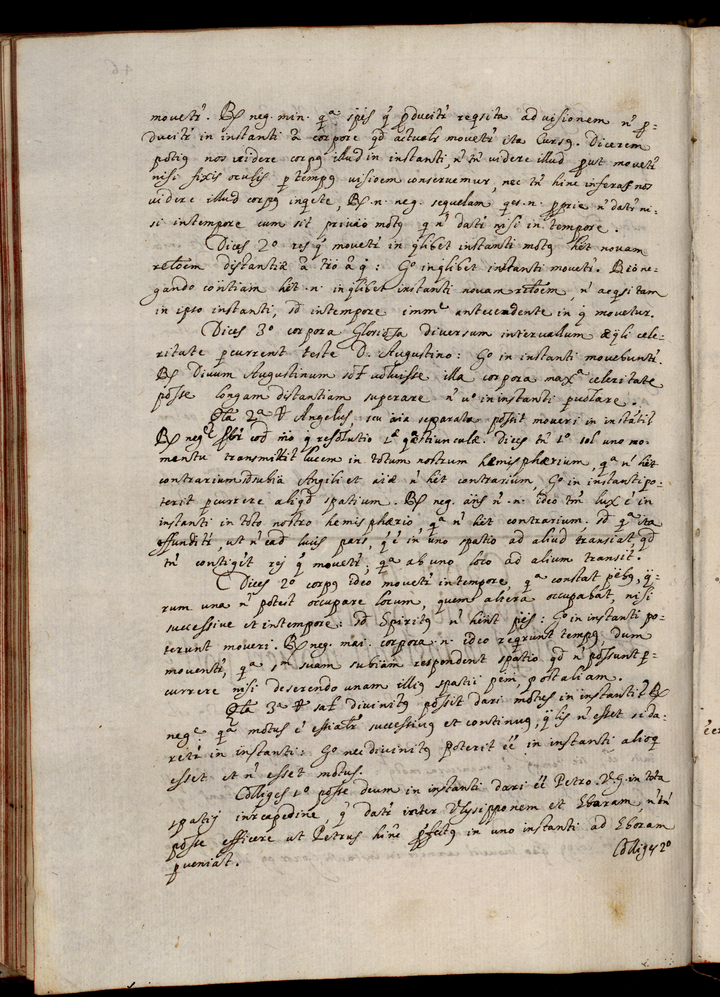 movetr̃. Rx neg. min. qᵃ spẽs q̃ pducitr̃ reqsita ad visionem ñ p-
ducitr̃ in instanti a corpore qd actualr̃ movetr̃ ita Cursq. Dicerem
potiq nos videre corpq illud in instanti, ñ tñ videre illud put movetr̃
nisi fixis oculis p tempq visioem conservemur, nec tñ hinc inferas nos
videre illud corpq inqete, Rx. n. neg. sequelam qes. n. pprie ñ datr̃ ni-
si in tempore cum sit privaõ motq q ñ datr̃ nisi in tempore.
Dices 2º res q̃ movetr̃ in qlibet instanti motq hẽt novam
relõem distantiæ a tr̃o a q̃: Go in qlibet instanti movetr̃. Rx ne-
gando cõntiam hẽt. n. in qlibet instanti novam relõem, ñ acqsitam
in ipso instanti, sd in tempore immᵉ antecedente in q̃ movetur.
Dices 3º corpora Gloriosa diversum intervallum æqli cele-
ritate pcurrent teste D. Augustino: Go in instanti movebuntr̃.
Rx Divum Augustinum voluisse illa corpora maxᵃ celeritate
posse longam distantiam superare ñ vº in instanti pvolare.
2ᵃ Angelus, seu aia separata possit moveri in instãti
Rx negᵉ eod mõ q̃ resolutio 1ᵃ qæstiunculæ. Dices tñ 1º sol uno mo-
mento transmittit lucem in totum nostrum hæmisphærium, qᵃ ñ hẽt
contrarium sd subiã Angeli et aiæ ñ hẽt contrarium, Go in instanti po-
terit pcurrere aliqd spatium. Rx neg. añs ñ. n. ideo tm̃ lux ẽ in
instanti in toto nostro hemisphærio, qᵃ ñ hẽt contrarium, sd qᵃ ita
effunditr̃, ut ñ ead lucis pars, q̃ ẽ in uno spatio ad aliud transiat, qd
tñ contigit rej q̃ movetr̃, qᵃ ab uno loco ad alium transit.
Dices 2º corpq ideo movetr̃ in tempore, qᵃ constat ptibq, q-
rum una ñ potest occupare locum, quem altera occupabat, nisi
successive et in tempore: sd Spiritq ñ hñt ptes: Go in instanti po-
terunt moveri. Rx neg. mai. corpora. n. ideo reqrunt tempq, dum
moventr̃, qᵃ sm̃ suam subiãm respondent spatio qd ñ possunt p-
currere nisi deserendo unam illiq spatii ptem, post aliam.
3ᵃ divinitq possit dari motus in instanti Rx
negᵉ qᵃ motus ẽ essẽtialr̃ successivq et continuq, qlis ñ esset si da-
retr̃ in instanti: Go nec divinitq poterit ẽẽ in instanti alioq
esset et ñ esset motus.
Colliges 1º posse deum in instanti dari ẽẽ Petro v. G. in tota
spatij intercapedine, q̃ datr̃ inter Vlyssipponem et Eboram, ñ tñ
posse efficere ut Petrus hinc pfectq in uno instanti ad Eboram
pveniat.
Colliges 2º